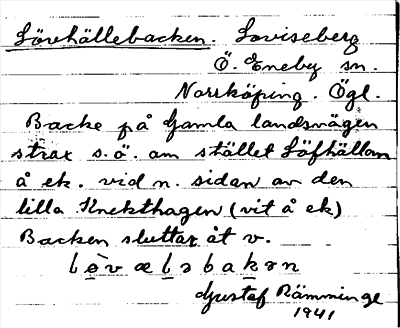 Lövhällebacken. Loviseberg
Ö. Eneby sn.
Norrköping. Ögl.
Backe på Gamla landsvägen
strax s.ö. om stället Löfhällan
å ek. vid n. sidan av den
lilla Knekthagen (vit å ek)
Backen sluttar åt v.
Gustaf Rämminge
1941